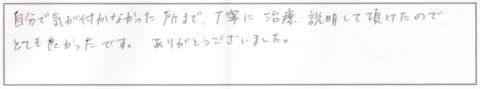 自分で気が付かなかった所まで、丁寧に治療・説明して頂けたので、
とても良かったです。ありがとうございました。